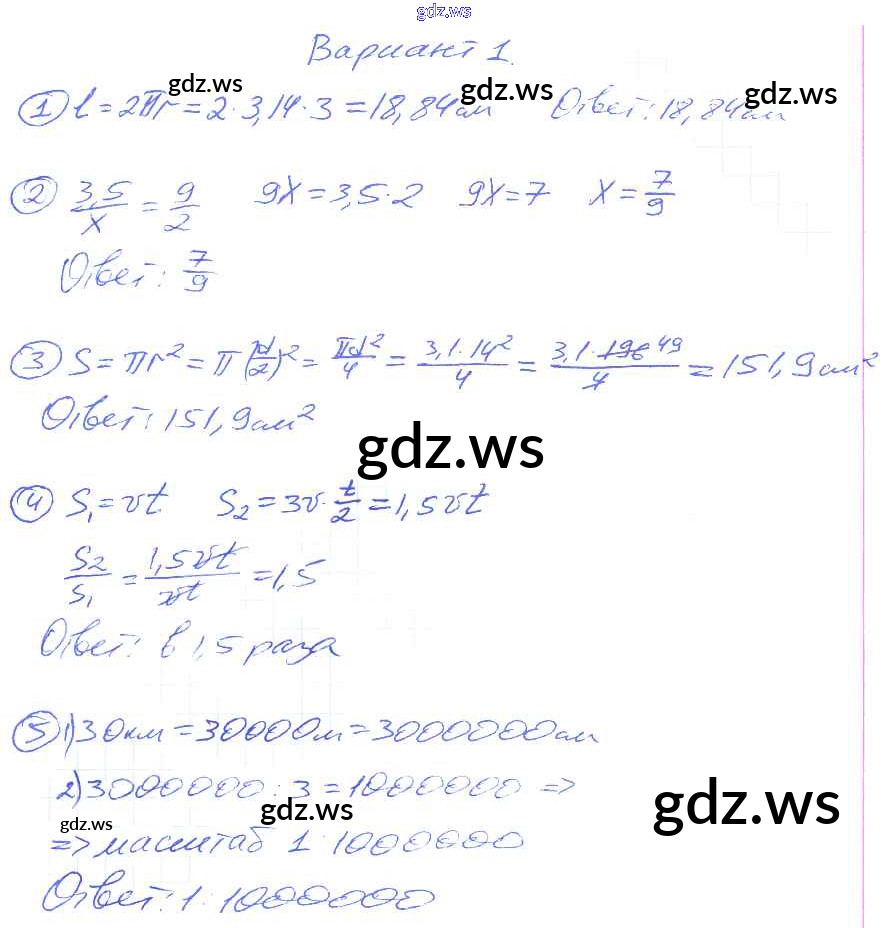 gdz.ws
Вариант 1.
gdz.ws gdz.ws gdz.ws
① l = 2πr = 2·3,14·3 = 18,84см Ответ: 18,84см
② 3,5/x = 9/2 9x = 3,5·2 9x = 7 x = 7/9
Ответ: 7/9
③ S = πr² = π(d/2)² = πd²/4 = 3,1·14²/4 = 3,1·196 49/4 = 151,9см²
Ответ: 151,9см²
gdz.ws
④ S₁ = vt S₂ = 3v·t/2 = 1,5vt
S₂/S₁ = 1,5vt/vt = 1,5
Ответ: в 1,5 раза
⑤ 1) 30км = 30000м = 3000000см
2) 3000000 : 3 = 1000000 =>
gdz.ws gdz.ws gdz.ws
=> масштаб 1:1000000
Ответ: 1:1000000